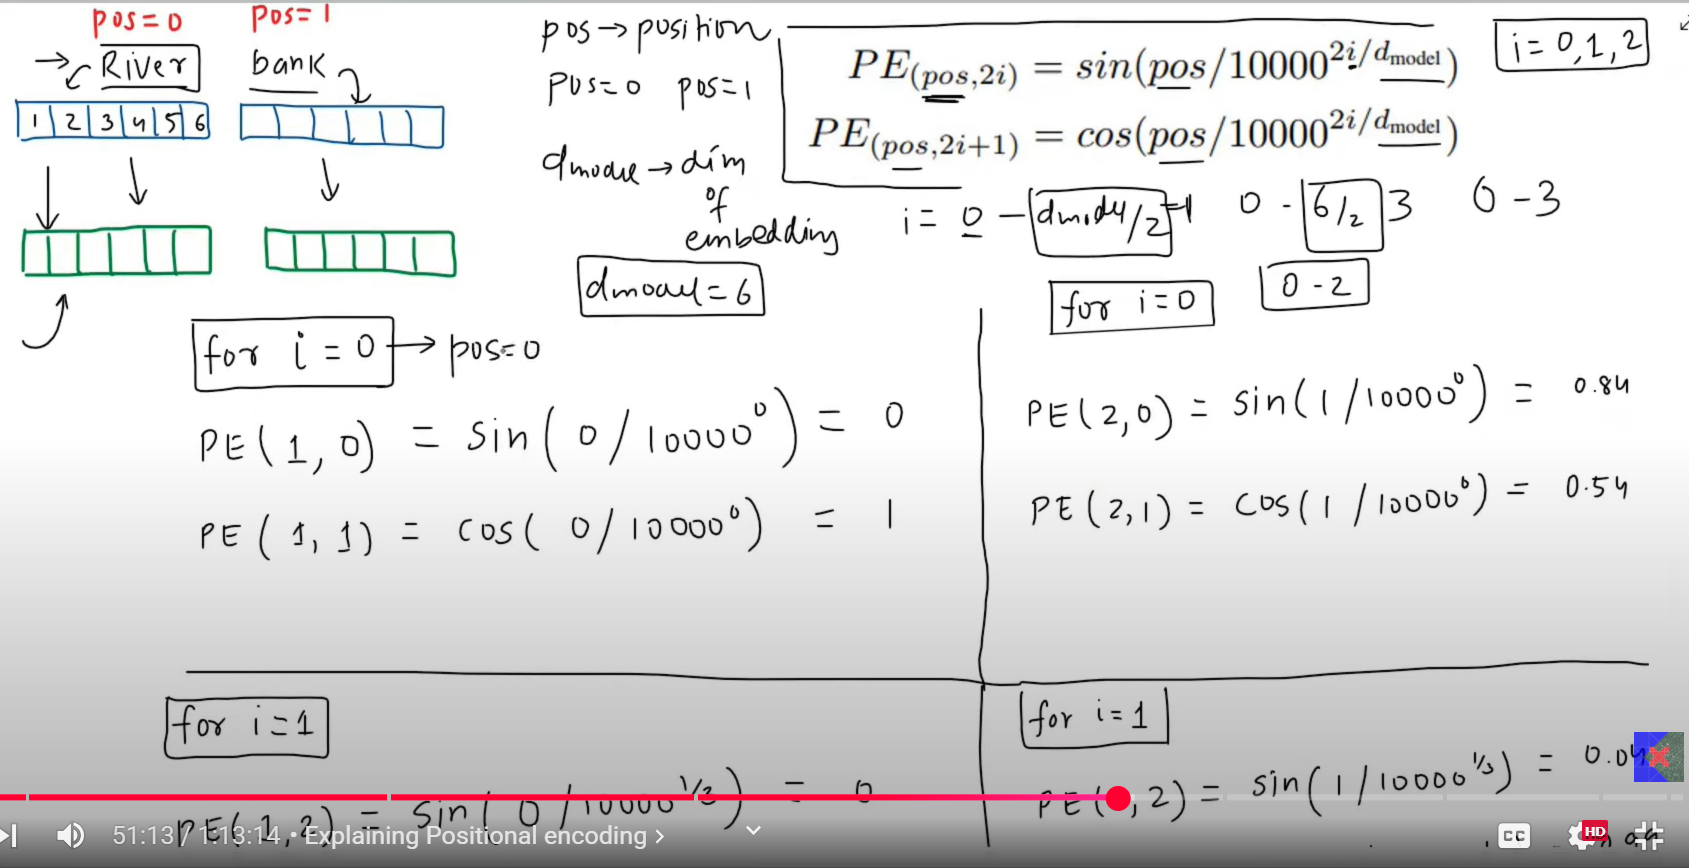 pos=0 pos=1
River bank
1 2 3 4 5 6
pos → position
pos=0 pos=1
dmodel → dim
of
embedding
dmodel=6
PE(pos,2i) = sin(pos/10000^2i/dmodel)
PE(pos,2i+1) = cos(pos/10000^2i/dmodel)
i=0,1,2
i = 0 - dmodel/2 -1 0 - 6/2 3 0 - 3
0 - 2
for i = 0 → pos=0
PE(1,0) = sin(0/10000^0) = 0
PE(1,1) = cos(0/10000^0) = 1
for i=0
PE(2,0) = sin(1/10000^0) = 0.84
PE(2,1) = cos(1/10000^0) = 0.54
for i=1
PE(1,2) = sin(0/10000^1/3) = 0
for i=1
PE( ,2) = sin(1/10000^1/3) = 0.04
51:13 / 1:13:14 • Explaining Positional encoding >
CC HD